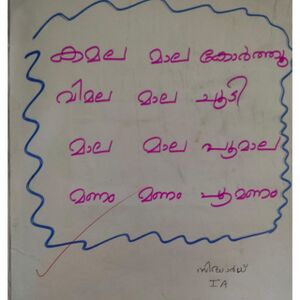 കമല മാല കോർത്തു
വിമല മാല ചൂടി
മാല മാല പൂമാല
മണം മണം പൂമണം
സിദ്ധാർത്ഥ്
I A